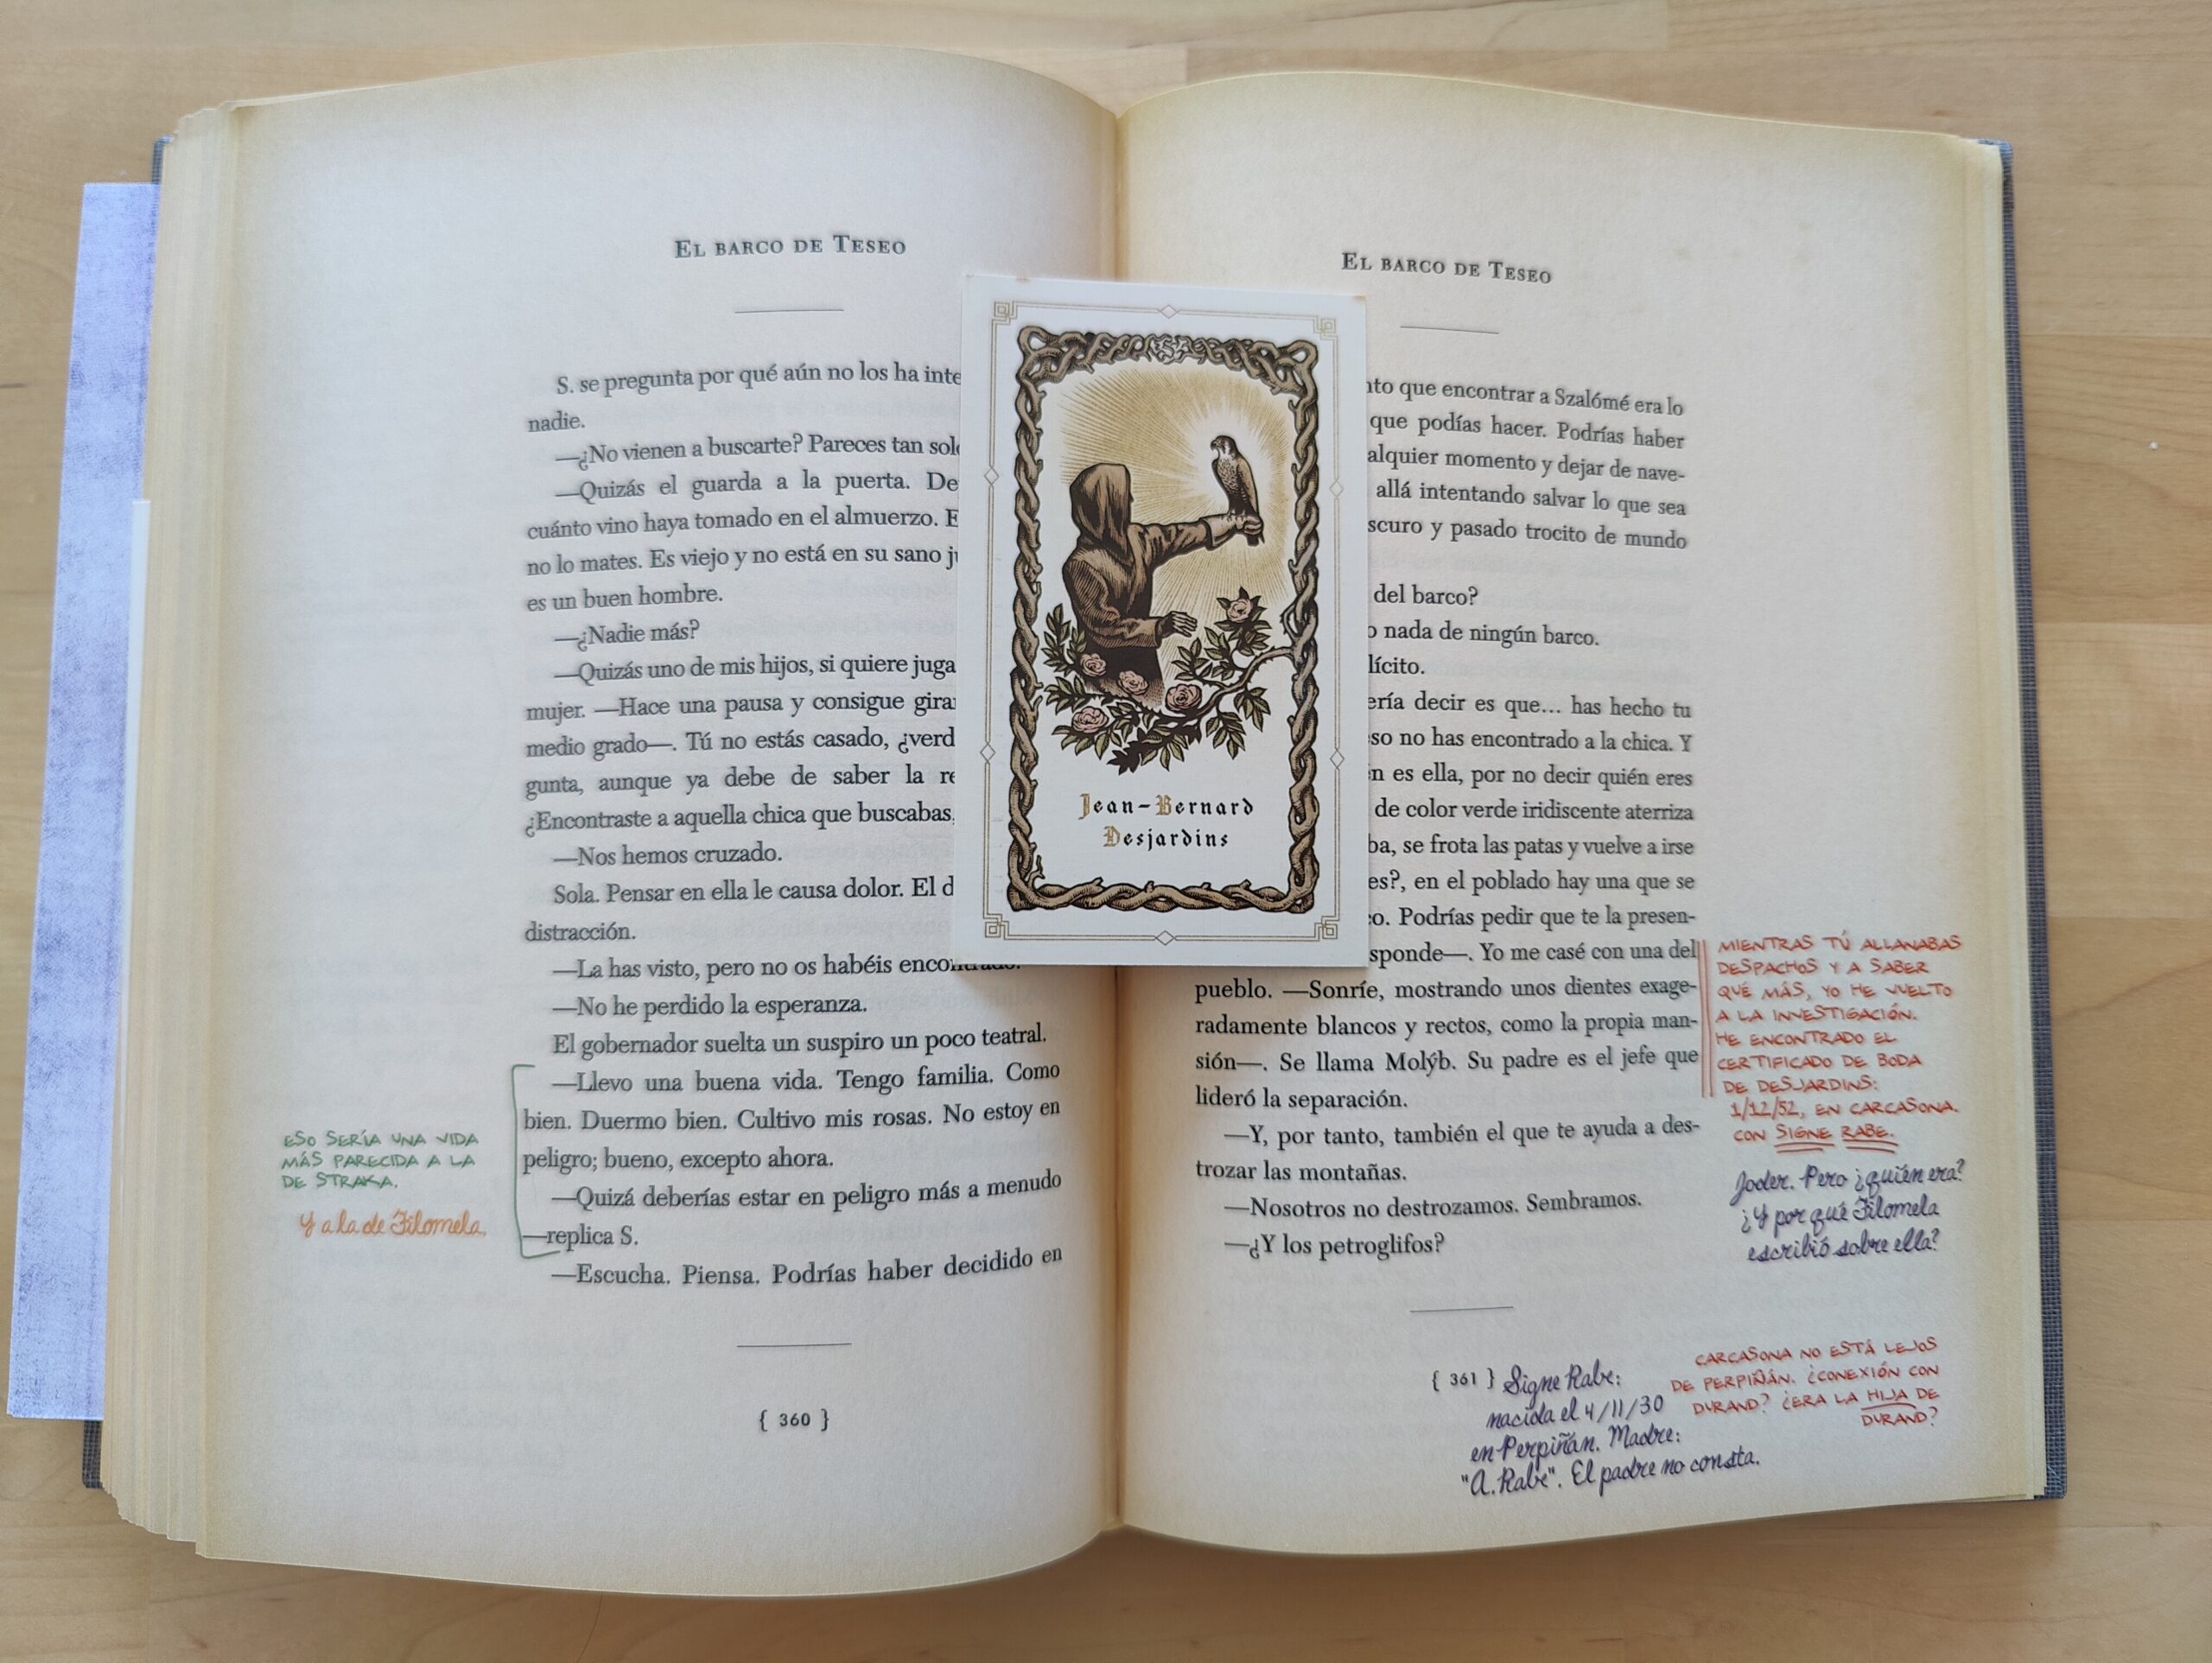 EL BARCO DE TESEO
S. se pregunta por qué aún no los ha
nadie.
—¿No vienen a buscarte? Pareces tan
—Quizás el guarda a la puerta.
cuánto vino haya tomado en el almuerzo.
no lo mates. Es viejo y no está en su sano
es un buen hombre.
—¿Nadie más?
—Quizás uno de mis hijos, si quiere
mujer. —Hace una pausa y consigue
medio grado—. Tú no estás casado,
gunta, aunque ya debe de saber la
¿Encontraste a aquella chica que buscabas,
—Nos hemos cruzado.
Sola. Pensar en ella le causa dolor. El
distracción.
—La has visto, pero no os habéis encontrado.
—No he perdido la esperanza.
El gobernador suelta un suspiro un poco teatral.
—Llevo una buena vida. Tengo familia. Como
bien. Duermo bien. Cultivo mis rosas. No estoy en
peligro; bueno, excepto ahora.
—Quizá deberías estar en peligro más a menudo
—replica S.
—Escucha. Piensa. Podrías haber decidido en
{ 360 }
ESO SERÍA UNA VIDA
MÁS PARECIDA A LA
DE STRAKA.
Y a la de Filomela.
Jean-Bernard
Desjardins
EL BARCO DE TESEO
que encontrar a Szalómé era lo
que podías hacer. Podrías haber
momento y dejar de nave-
allá intentando salvar lo que sea
y pasado trocito de mundo
del barco?
nada de ningún barco.
decir es que... has hecho tu
no has encontrado a la chica. Y
es ella, por no decir quién eres
de color verde iridiscente aterriza
se frota las patas y vuelve a irse
en el poblado hay una que se
Podrías pedir que te la presen-
Yo me casé con una del
pueblo. —Sonríe, mostrando unos dientes exage-
radamente blancos y rectos, como la propia man-
sión—. Se llama Molýb. Su padre es el jefe que
lideró la separación.
—Y, por tanto, también el que te ayuda a des-
trozar las montañas.
—Nosotros no destrozamos. Sembramos.
—¿Y los petroglifos?
{ 361 }
MIENTRAS TÚ ALLANABAS
DESPACHOS Y A SABER
QUÉ MÁS, YO HE VUELTO
A LA INVESTIGACIÓN.
HE ENCONTRADO EL
CERTIFICADO DE BODA
DE DESJARDINS:
1/12/52, EN CARCASONA.
CON SIGNE RABE.
Joder. Pero ¿quién era?
¿Y por qué Filomela
escribió sobre ella?
Signe Rabe:
nacida el 4/11/30
en Perpiñán. Madre:
"A. Rabe". El padre no consta.
CARCASONA NO ESTÁ LEJOS
DE PERPIÑÁN. ¿CONEXIÓN CON
DURAND? ¿ERA LA HIJA DE
DURAND?